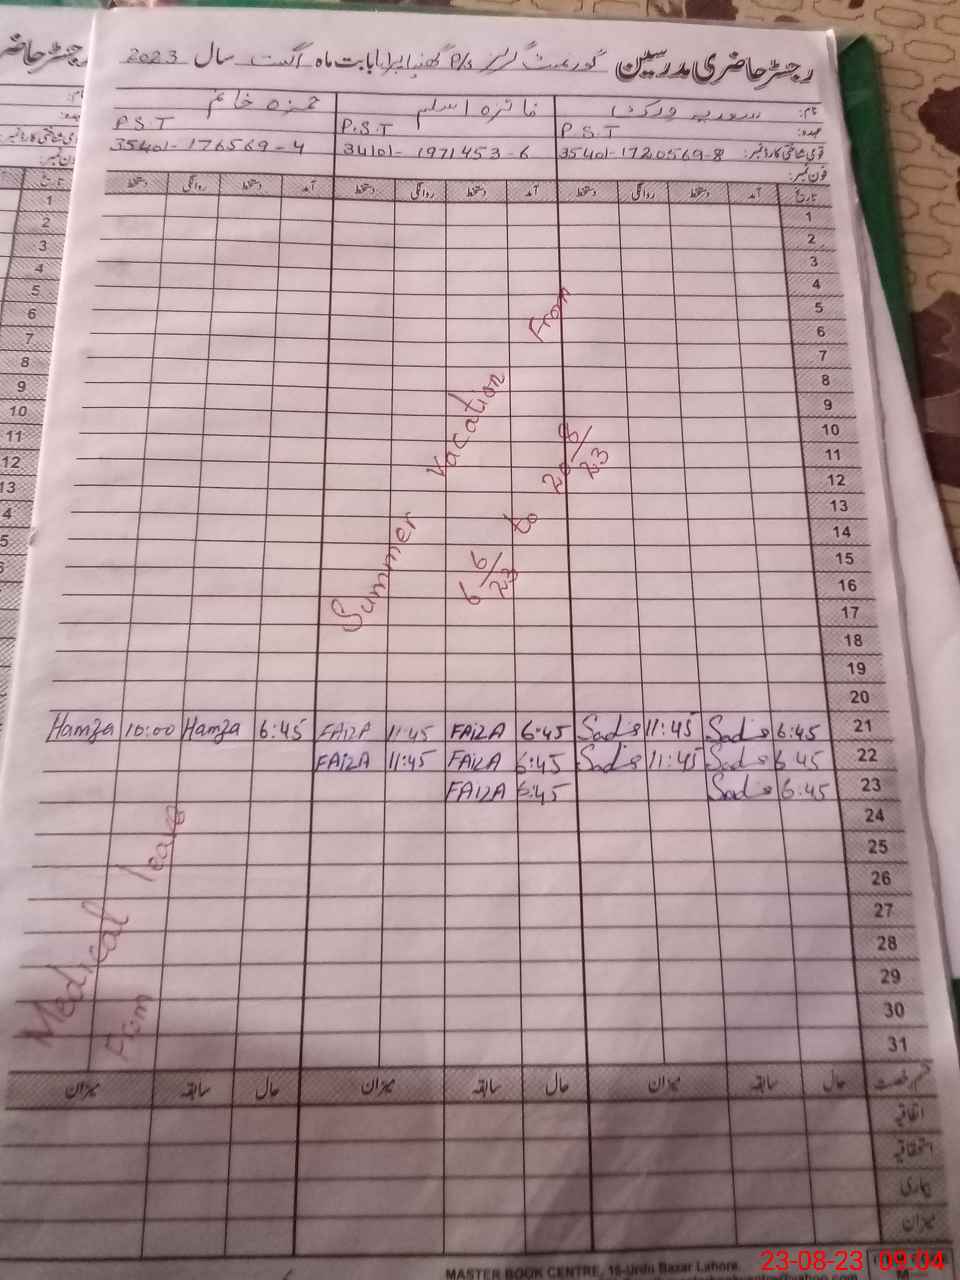 رجسٹر حاضری مدرسین گورنمنٹ گرلز P/S بابت ماہ اگست سال 2023
نام: سعدیہ ورک فائزہ اسلم حمزہ خانم
عہدہ: P.S.T P.S.T P.S.T
قومی شناختی کارڈ نمبر: 35401-1720569-8 34101-1971453-6 35401-176569-4
فون نمبر:
تاریخ آمد دستخط روانگی دستخط آمد دستخط روانگی دستخط آمد دستخط روانگی دستخط
1
2
3
4
5
6
7
8
9
10
11
12
13
14
15
16
17
18
19
20
Summer Vacation From
6 6/23 to 20 8/23
21 6:45 Sadia 11:45 Sadia 6:45 FAIZA 11:45 FAIZA 6:45 Hamza 10:00 Hamza
22 6:45 Sadia 11:45 Sadia 6:45 FAIZA 11:45 FAIZA
23 6:45 Sadia 6:45 FAIZA
24
25
26
27
28
29
30
31
Medical leave
From
قسم رخصت حال سابقہ میزان حال سابقہ میزان حال سابقہ میزان
اتفاقیہ
استحقاقیہ
بیماری
میزان
MASTER BOOK CENTRE, 16-Urdu Bazar Lahore.
23-08-23 09:04